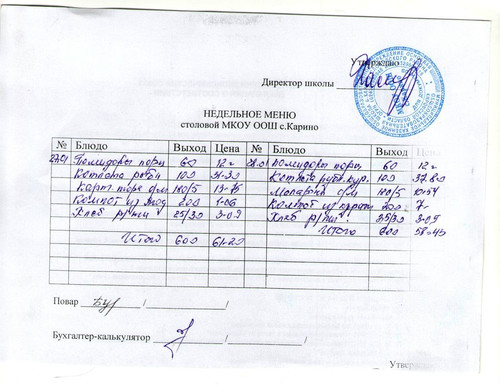 Утверждаю
Директор школы
НЕДЕЛЬНОЕ МЕНЮ
столовой МКОУ ООШ с.Карино
№ Блюдо Выход Цена № Блюдо Выход Цена
27.01 Помидоры порц 60 12= 28.01 Помидоры порц 60 12=
Котлета рыбн 100 Котлета руб. кур. 100
Карт. толч с/м 180/5 Макароны с/м 180/5
Компот из 200 Компот из кураги 200 7=
Хлеб рж/пш 25/30 3-09 Хлеб рж/пш 25/30 3-09
Итого 600 61-20 Итого 600 58-43
Повар
Бухгалтер-калькулятор
Утвер